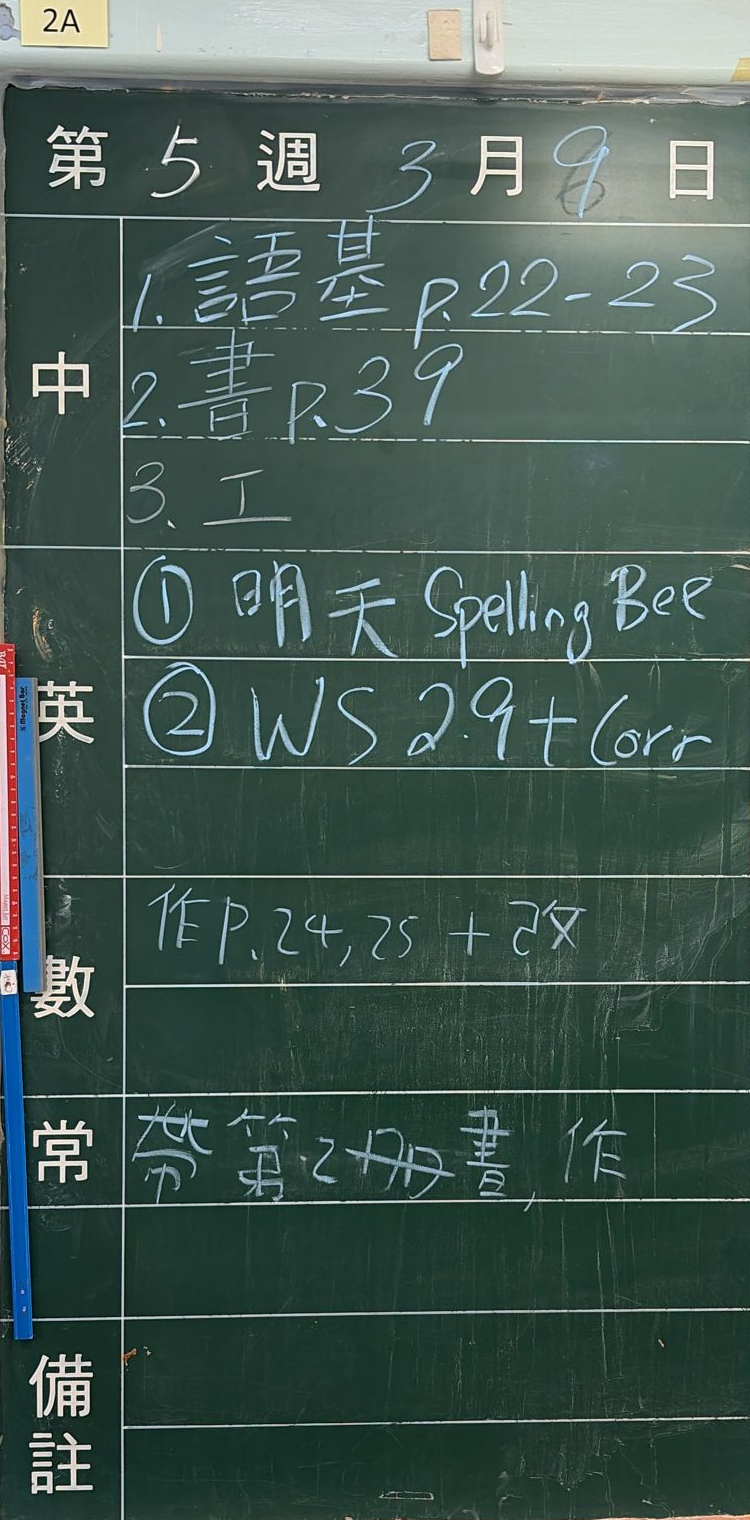 2A
第 5 週 3 月 9 日
中
1. 語基 p.22-23
2. 書 p.39
3. 工
英
① 明天 Spelling Bee
② WS 2.9 + Corr
數
作 P.24,25 + 改
常
帶第2冊書, 作
備註
Magnet Bar